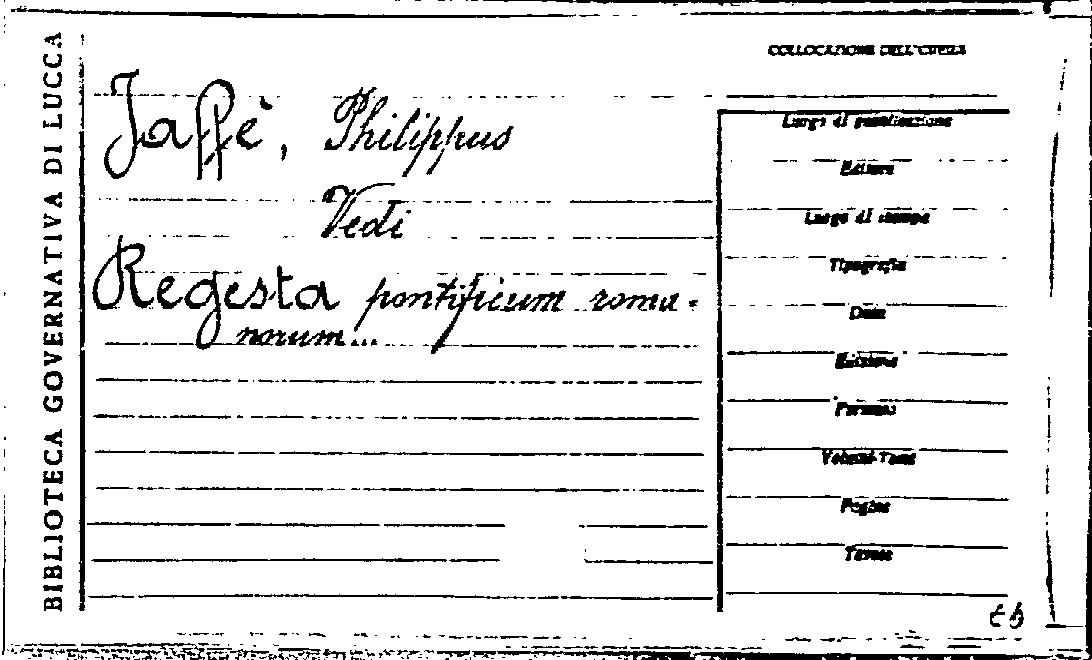 BIBLIOTECA GOVERNATIVA DI LUCCA
COLLOCAZIONE DELL'OPERA
Jaffè, Philippus
Vedi
Regesta pontificum roma-
norum...
Luogo di pubblicazione
Editore
Luogo di stampa
Tipografia
Data
Edizione
Formato
Volumi-Tomi
Pagine
Tavole